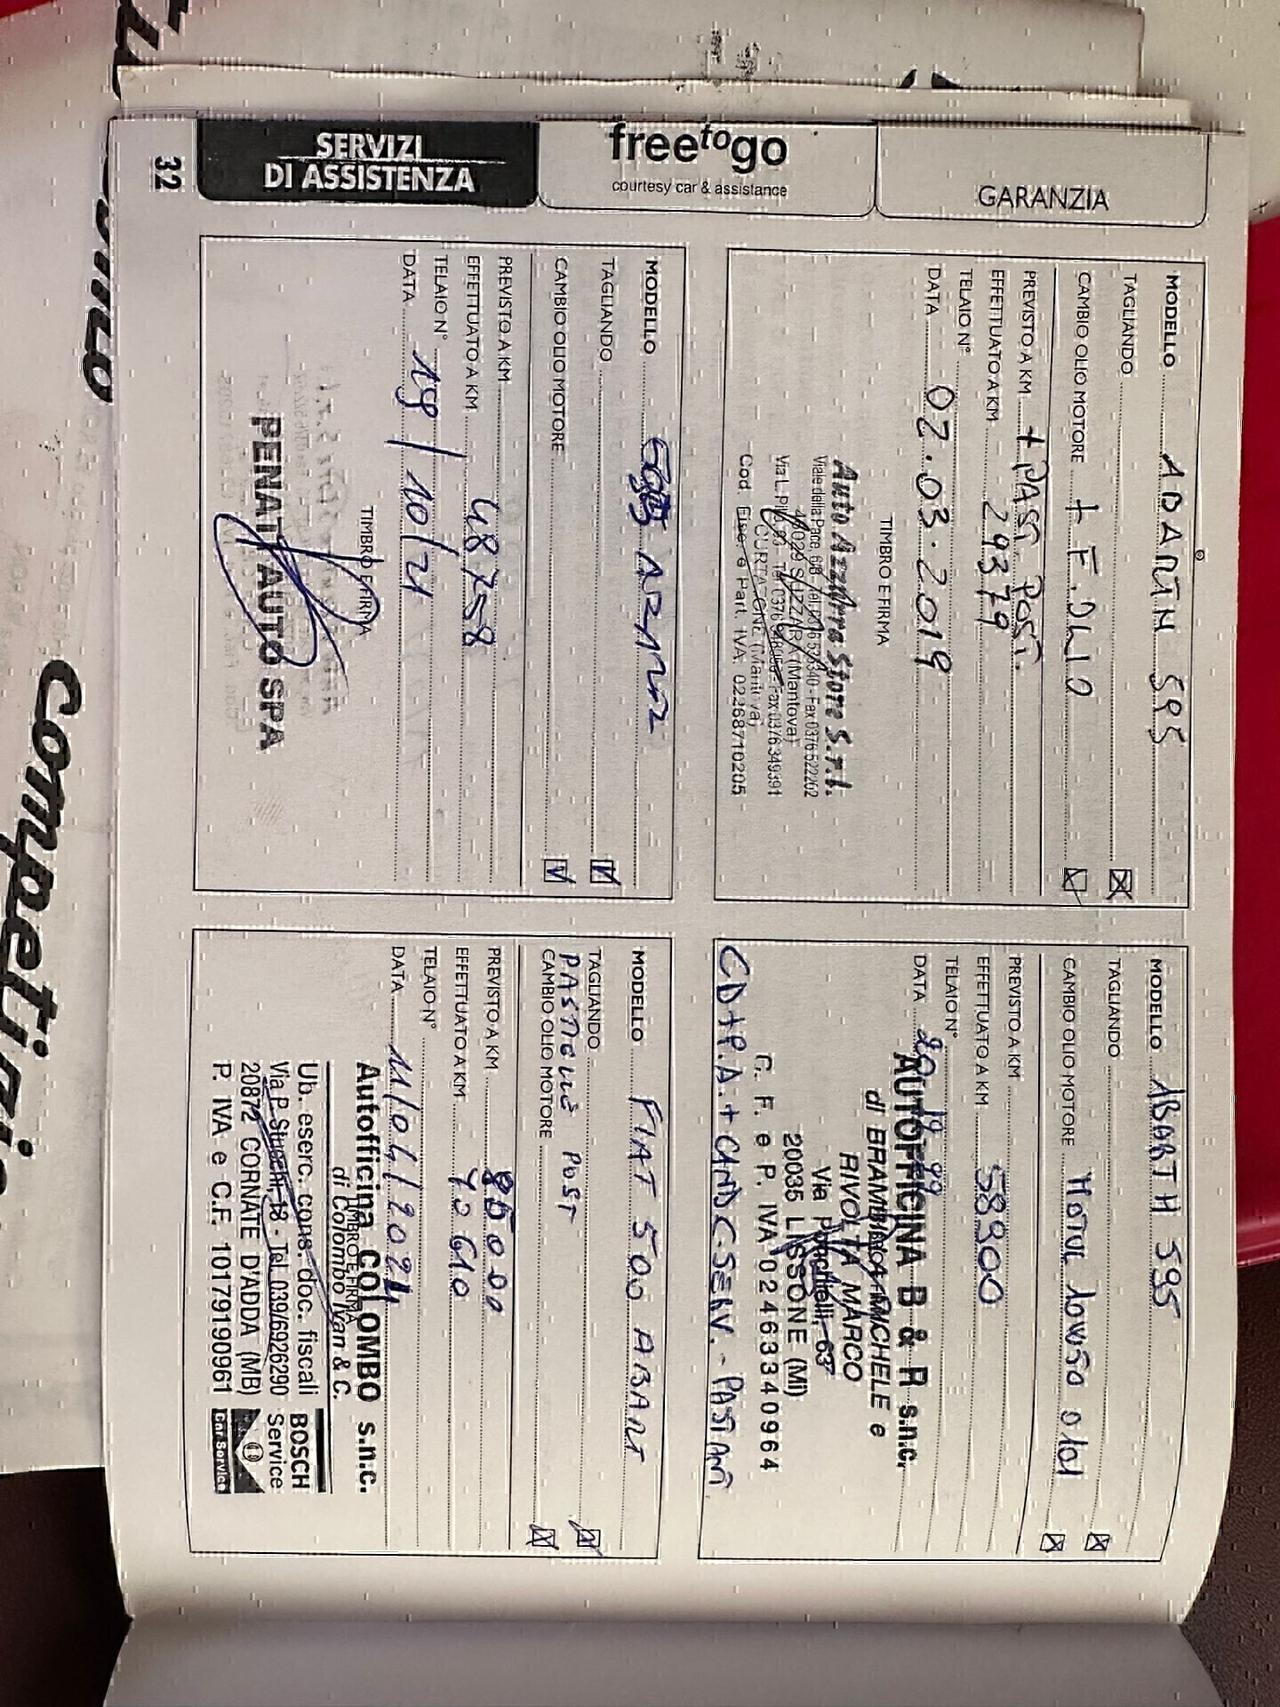 SERVIZI
DI ASSISTENZA
freetogo
courtesy car & assistance
GARANZIA
32
MODELLO ABARTH 595
TAGLIANDO
CAMBIO OLIO MOTORE + F. OLIO
PREVISTO A KM + PAST. POST.
EFFETTUATO A KM 29379
TELAIO N°
DATA 02.03.2019
TIMBRO E FIRMA
Auto Azzurra Store S.r.l.
Viale della Pace, Tel. 0376 523340 - Fax 0376 522262
46029 SUZZARA (Mantova)
Via L. Fax 0376 349391
CURTATONE (Mantova)
Cod. Fisc. e Part. IVA 02268710205
MODELLO ABARTH 595
TAGLIANDO
CAMBIO OLIO MOTORE MOTUL 10W50
PREVISTO A KM
EFFETTUATO A KM 58900
TELAIO N°
DATA
AUTOFFICINA B & R s.n.c.
di BRAMBILLA MICHELE e
RIVOLTA MARCO
Via Ponchielli, 63
20035 LISSONE (MI)
C. F. e P. IVA 02463340964
MODELLO 595
TAGLIANDO
CAMBIO OLIO MOTORE
PREVISTO A KM
EFFETTUATO A KM 48758
TELAIO N°
DATA 19/10/21
TIMBRO E FIRMA
PENATI AUTO SPA
MODELLO FIAT 500 ABART
TAGLIANDO
PASTICLIE POST
CAMBIO OLIO MOTORE
PREVISTO A KM
EFFETTUATO A KM 70610
TELAIO N°
DATA 11/04/2024
TIMBRO E FIRMA
Autofficina COLOMBO s.n.c.
di Colombo Ivan & C.
Ub. eserc. cons. doc. fiscali
Via P. 18 - Tel. 039/6926290
20872 CORNATE D'ADDA (MB)
P. IVA e C.F. 10179190961
BOSCH
Service
Car Service
Competizio